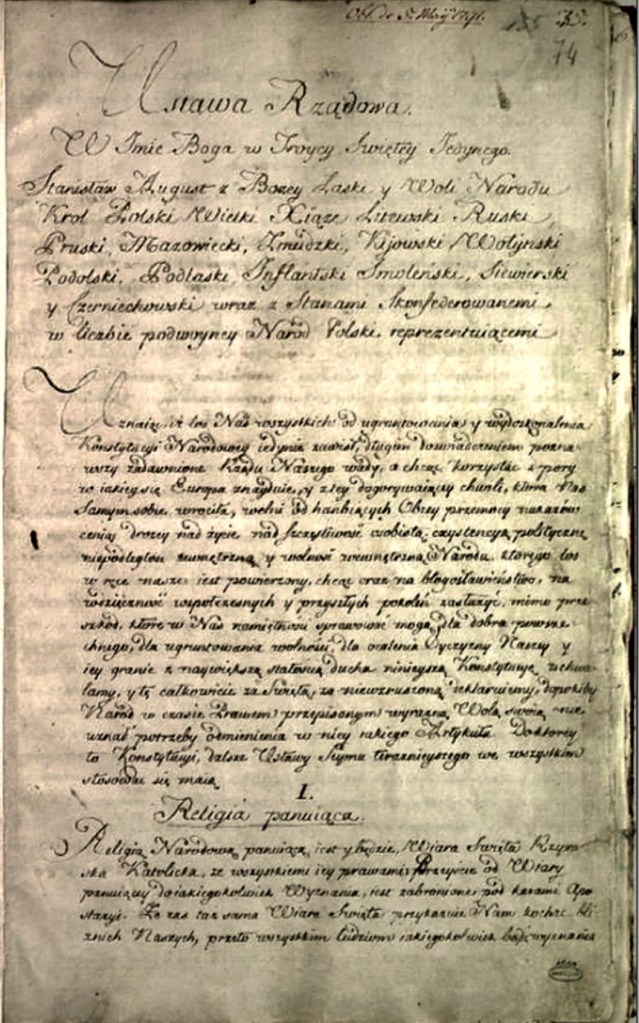 Obl. de 5ta Maij 1791.
74
Ustawa Rządowa.
W Imie Boga w Troycy Swiętey Jedynego.
Stanisław August z Bożey Łaski y Woli Narodu
Krol Polski Wielki Xiąże Litewski Ruski
Pruski, Mazowiecki, Zmudzki, Kijowski Wołyński
Podolski, Podlaski Inflantski Smoleński, Siewierski
y Czerniechowski wraz z Stanami Skonfederowanemi
w liczbie podwoyney Naród Polski reprezentuiącemi
Uznaiąc, iż los Nas wszystkich od ugruntowania y wydoskonalenia
Konstytucyi Narodowey iedynie zawisł, długim doświadczeniem pozna-
wszy zadawnione Rządu Naszego wady, a chcąc korzystać z pory
w iakiey się Europa znayduie, y z tey dogorywaiącey chwili, która Nas
Samym sobie wrociła, wolni od hańbiących Obcey przemocy nakazów
ceniąc drożey nad życie nad szczęśliwość osobistą exystencyą polityczną
niepodległość zewnętrzną y wolność wewnętrzną Narodu, ktorego los
w ręce nasze iest powierzony, chcąc oraz na błogosławieństwo, na
wdzięczność współczesnych y przyszłych pokoleń zasłużyć, mimo prze-
szkód, które w Nas namiętności sprawować mogą, dla dobra powsze-
chnego, dla ugruntowania wolności, dla ocalenia Oyczyzny Naszey y
iey granic z naywiększą stałością ducha ninieyszą Konstytucyę uchwa-
lamy, y tę całkowicie za Swiętą, za niewzruszoną deklaruiemy, dopokiby
Naród w czasie Prawem przepisanym wyraźną Wolą swoią nie
uznał potrzeby odmienienia w niey iakiego Artykułu. Do ktorey
to Konstytucyi, dalsze Ustawy Seymu teraznieyszego we wszystkim
stosować się maią.
I.
Religia panuiąca.
Religią Narodową panuiącą, iest y będzie, Wiara Swięta Rzym-
ska Katolicka, ze wszystkiemi iey prawami. Przeyście od Wiary
panuiącey do iakiegokolwiek Wyznania, iest zabronione pod karami Apo-
stazyi. Ze zaś taż sama Wiara Swięta przykazuie Nam kochać bli-
znich Naszych, przeto wszystkim ludziom iakiegokolwiek bądź wyznania